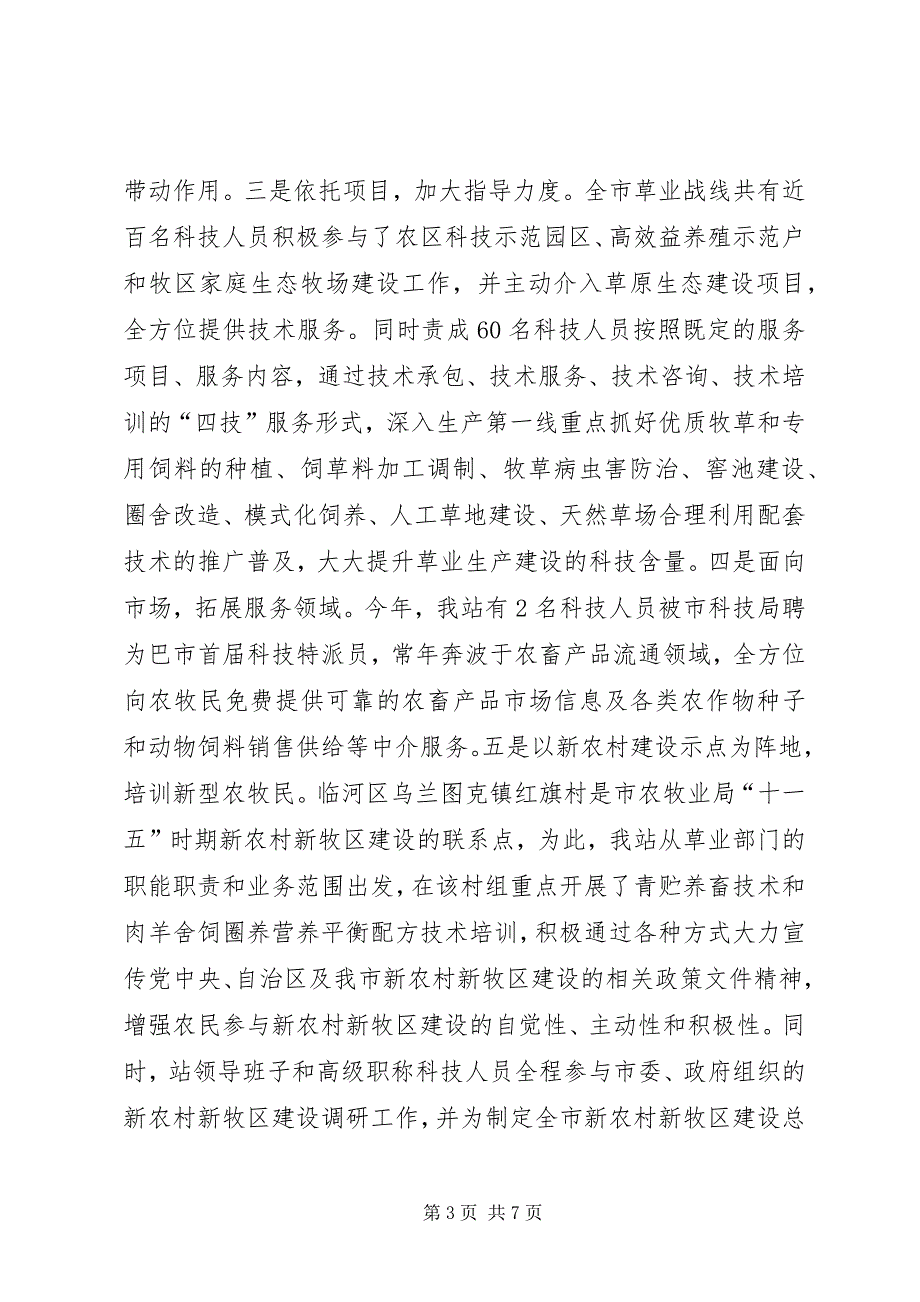 带动作用。三是依托项目，加大指导力度。全市草业战线共有近
百名科技人员积极参与了农区科技示范园区、高效益养殖示范户
和牧区家庭生态牧场建设工作，并主动介入草原生态建设项目，
全方位提供技术服务。同时责成 60 名科技人员按照既定的服务
项目、服务内容，通过技术承包、技术服务、技术咨询、技术培
训的“四技”服务形式，深入生产第一线重点抓好优质牧草和专
用饲料的种植、饲草料加工调制、牧草病虫害防治、窖池建设、
圈舍改造、模式化饲养、人工草地建设、天然草场合理利用配套
技术的推广普及，大大提升草业生产建设的科技含量。四是面向
市场，拓展服务领域。今年，我站有 2 名科技人员被市科技局聘
为巴市首届科技特派员，常年奔波于农畜产品流通领域，全方位
向农牧民免费提供可靠的农畜产品市场信息及各类农作物种子
和动物饲料销售供给等中介服务。五是以新农村建设示点为阵地，
培训新型农牧民。临河区乌兰图克镇红旗村是市农牧业局“十一
五”时期新农村新牧区建设的联系点，为此，我站从草业部门的
职能职责和业务范围出发，在该村组重点开展了青贮养畜技术和
肉羊舍饲圈养营养平衡配方技术培训，积极通过各种方式大力宣
传党中央、自治区及我市新农村新牧区建设的相关政策文件精神，
增强农民参与新农村新牧区建设的自觉性、主动性和积极性。同
时，站领导班子和高级职称科技人员全程参与市委、政府组织的
新农村新牧区建设调研工作，并为制定全市新农村新牧区建设总
第 3 页 共 7 页